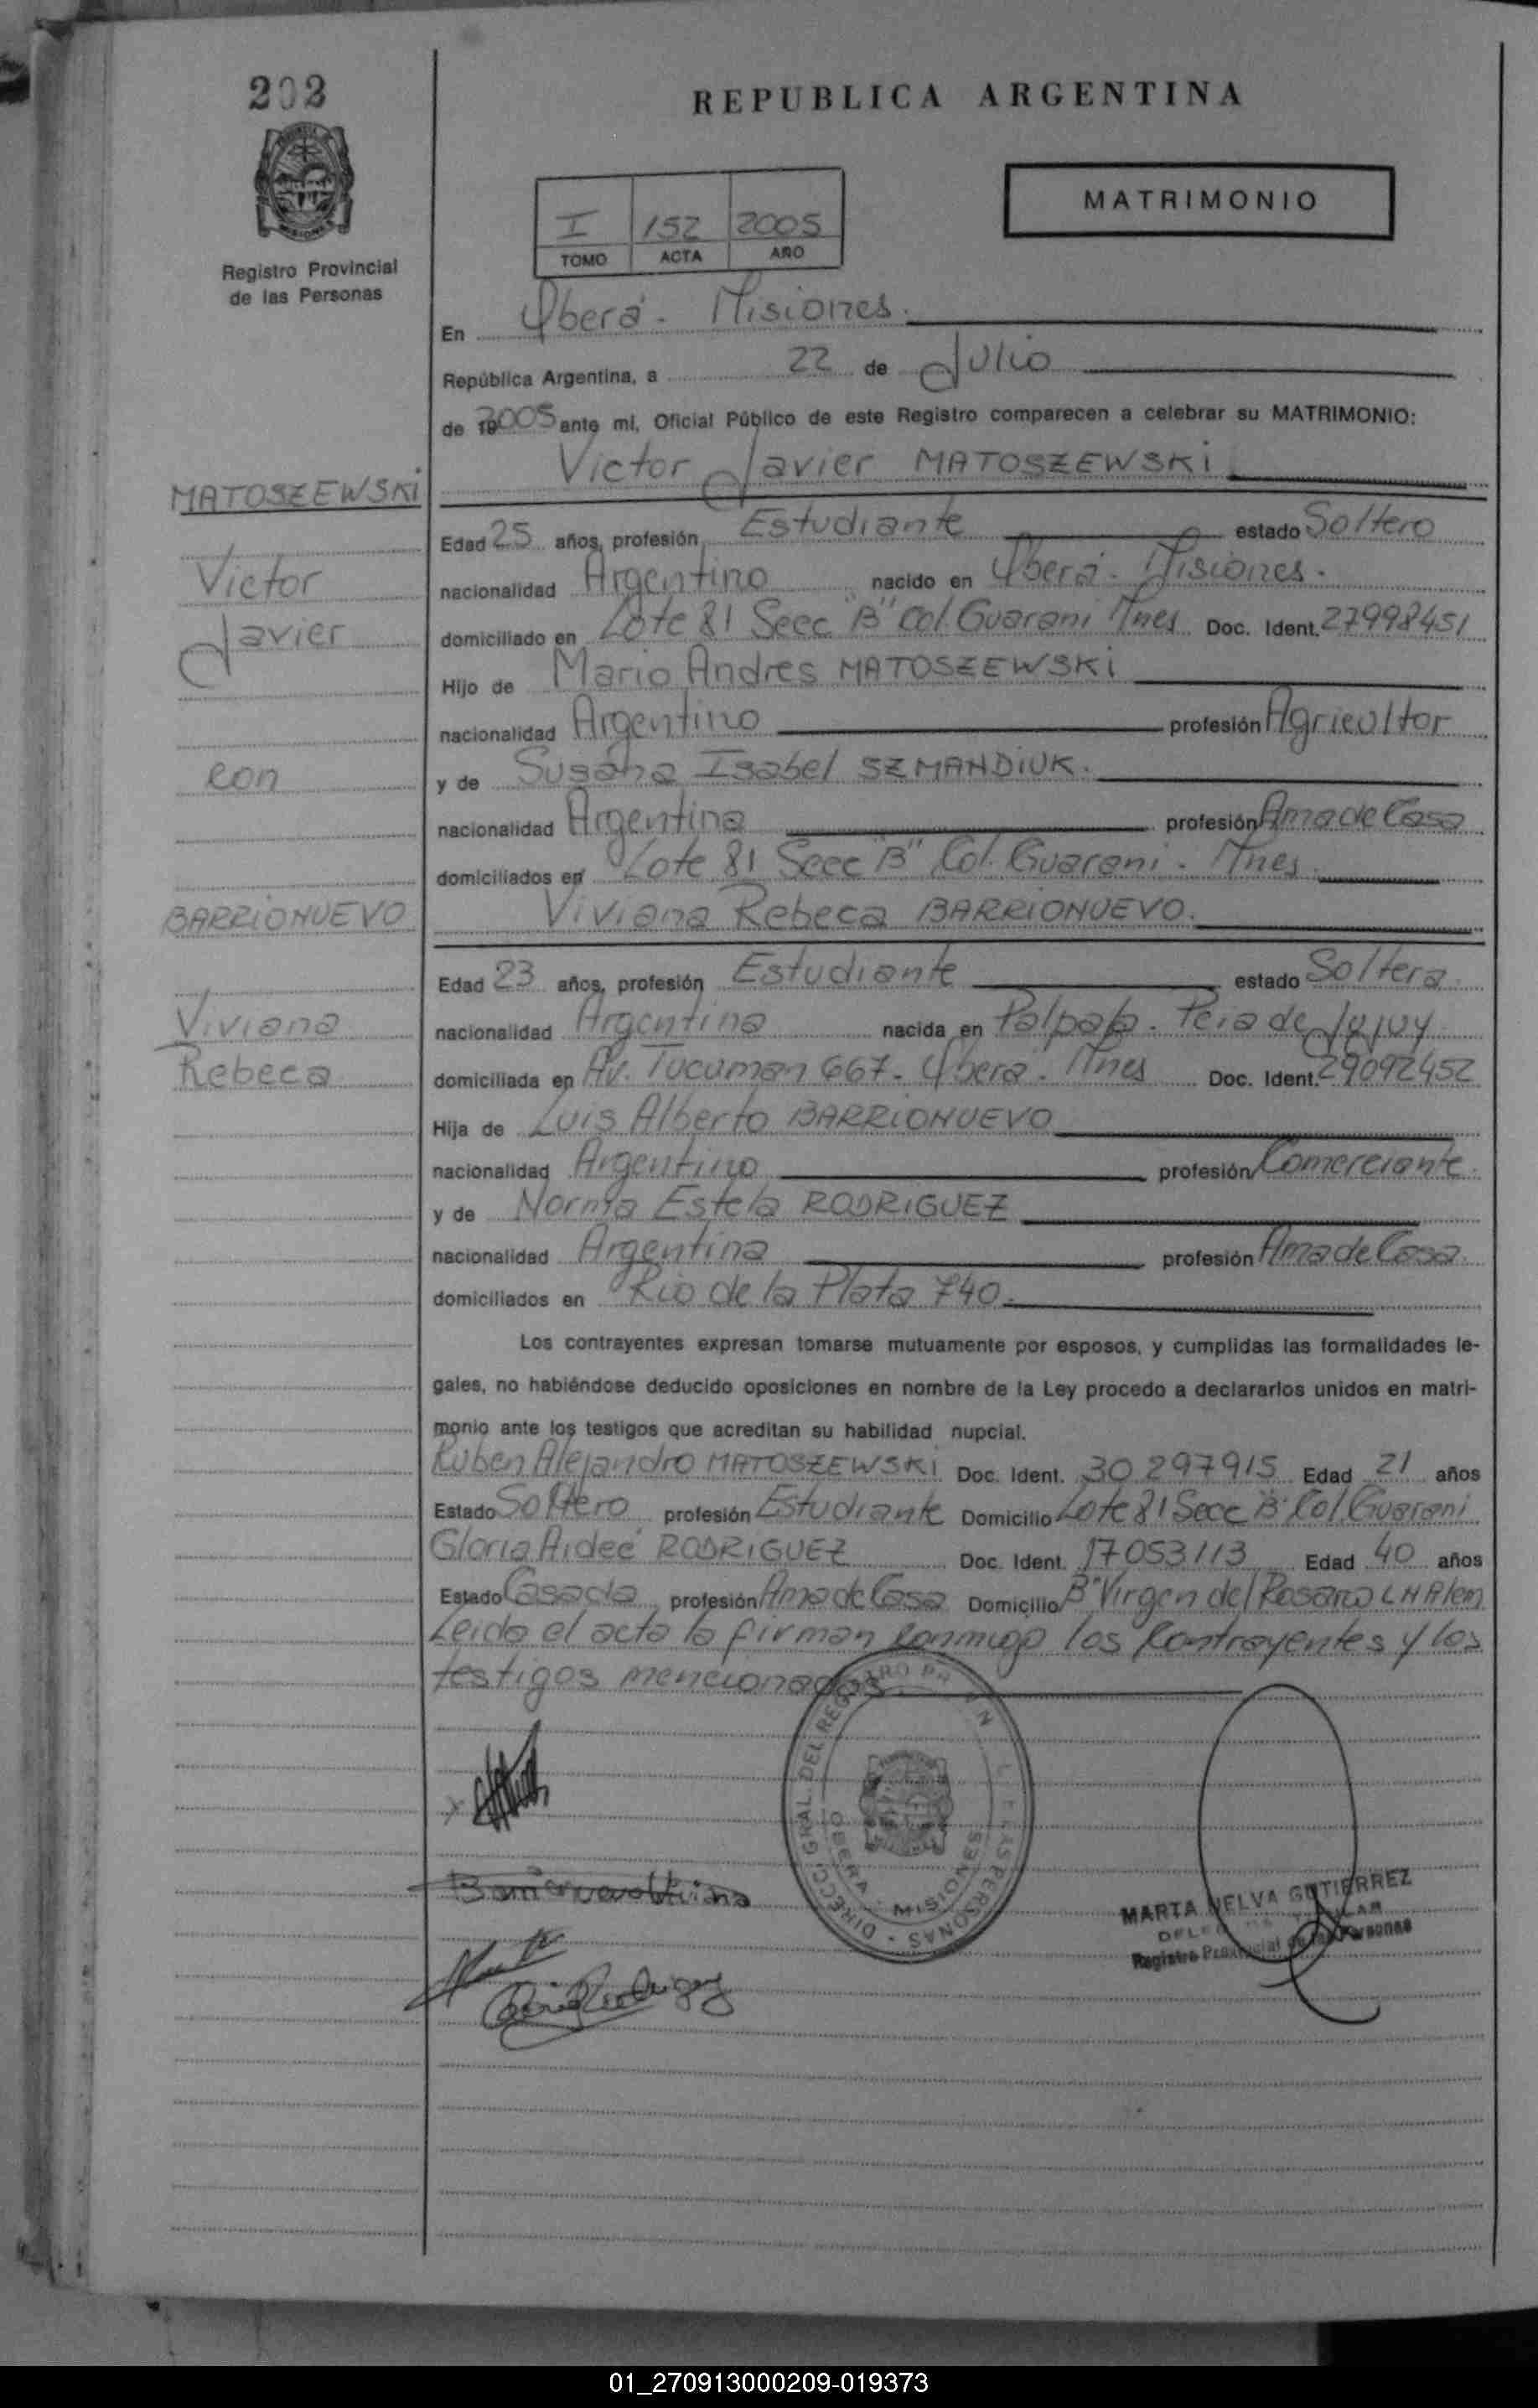 202
REPUBLICA ARGENTINA
MATRIMONIO
I 152 2005
TOMO ACTA AÑO
Registro Provincial
de las Personas
En Oberá - Misiones.
República Argentina, a 22 de Julio
de 2005 ante mi, Oficial Público de este Registro comparecen a celebrar su MATRIMONIO:
Victor Javier MATOSZEWSKi
MATOSZEWSKi
Edad 25 años, profesión Estudiante estado Soltero
Victor
nacionalidad Argentino nacido en Oberá - Misiones.
Javier
domiciliado en Lote 81 Secc "B" Col. Guarani Mnes Doc. Ident. 27998451
Hijo de Mario Andres MATOSZEWSKi
nacionalidad Argentino profesión Agricultor
con
y de Susana Isabel SZMANDiUK.
nacionalidad Argentina profesión Ama de Casa
domiciliados en Lote 81 Secc "B" Col. Guarani - Mnes.
BARRiONUEVO
Viviana Rebeca BARRiONUEVO.
Edad 23 años, profesión Estudiante estado Soltera
Viviana
nacionalidad Argentina nacida en Palpala - Pcia de Jujuy
Rebeca
domiciliada en Av. Tucuman 667 - Oberá - Mnes Doc. Ident. 29092452
Hija de Luis Alberto BARRiONUEVO
nacionalidad Argentino profesión Comerciante
y de Norma Estela RODRiGUEZ
nacionalidad Argentina profesión Ama de Casa
domiciliados en Rio de la Plata 740.
Los contrayentes expresan tomarse mutuamente por esposos, y cumplidas las formalidades le-
gales, no habiéndose deducido oposiciones en nombre de la Ley procedo a declararlos unidos en matri-
monio ante los testigos que acreditan su habilidad nupcial.
Ruben Alejandro MATOSZEWSKi Doc. Ident. 30.297915 Edad 21 años
Estado Soltero profesión Estudiante Domicilio Lote 81 Secc "B" Col. Guarani
Gloria Aideé RODRiGUEZ Doc. Ident. 17053113 Edad 40 años
Estado Casada profesión Ama de Casa Domicilio B° Virgen del Rosario L N Alem
Leida el acta la firman conmigo los contrayentes y los
testigos mencionados
DIRECC. GRAL. DEL REGISTRO PERSONAS
OBERA - MISIONES
Barrionuevo Viviana
MARTA NELVA GUTIERREZ
Registro Provincial de las Personas
Gloria Rodriguez
01_270913000209-019373